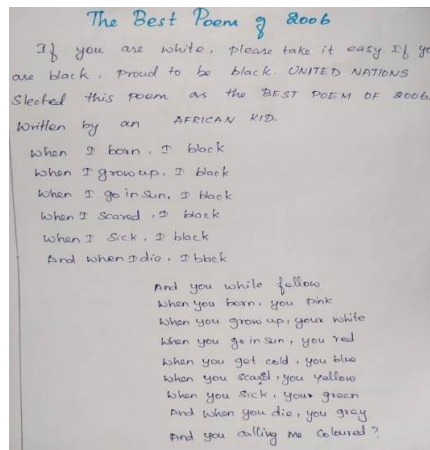 The Best Poem of 2006
If you are white, please take it easy. If
are black, proud to be black. UNITED NATIONS
Slected this poem as the BEST POEM OF 2006.
Written by an AFRICAN KID.
When I born, I black
When I grow up, I black
When I go in sun, I black
When I Scared, I black
When I Sick, I black
And when I die, I black
And you while fellow
When you born, you pink
When you grow up, your white
When you go in sun, you red
When you get cold, you blue
When you scared, you yellow
When you sick, your green
And when you die, you gray
And you calling me coloured?